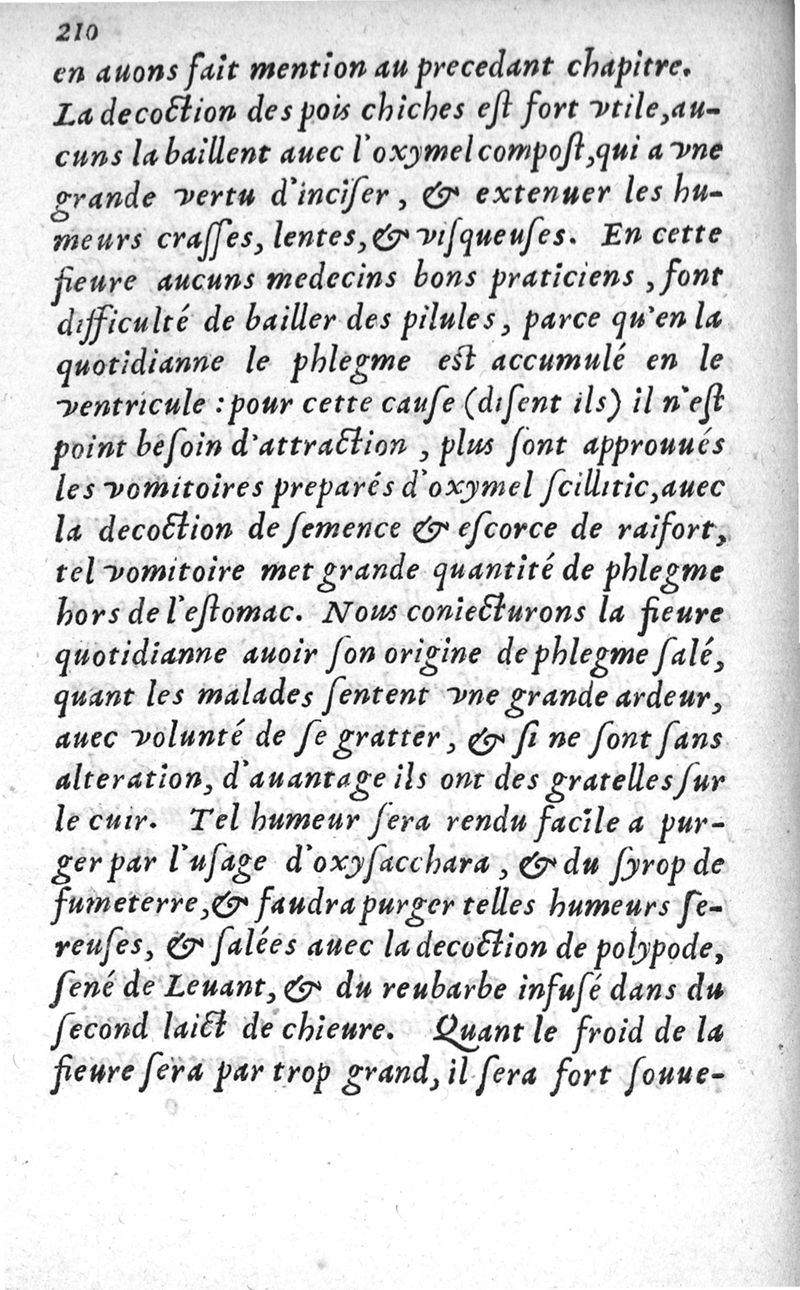 210
en auons fait mention au precedant chapitre.
La decoction des pois chiches eſt fort vtile,au-
cuns la baillent auec l'oxymel compoſt,qui a vne
grande vertu d'inciſer, & extenuer les hu-
meurs craſſes, lentes, & viſqueuſes. En cette
fieure aucuns medecins bons praticiens , font
difficulté de bailler des pilules, parce qu'en la
quotidianne le phlegme eſt accumulé en le
ventricule : pour cette cauſe (diſent ils) il n'eſt
point beſoin d'attraction , plus ſont approuués
les vomitoires preparés d'oxymel ſcillitic,auec
la decoction de ſemence & eſcorce de raifort,
tel vomitoire met grande quantité de phlegme
hors de l'eſtomac. Nous coniecturons la fieure
quotidianne auoir ſon origine de phlegme ſalé,
quant les malades ſentent vne grande ardeur,
auec volunté de ſe gratter, & ſi ne ſont ſans
alteration, d'auantage ils ont des gratelles ſur
le cuir. Tel humeur ſera rendu facile a pur-
ger par l'uſage d'oxyſacchara , & du ſyrop de
fumeterre,& faudra purger telles humeurs ſe-
reuſes, & ſalées auec la decoction de polypode,
ſené de Leuant, & du reubarbe infuſé dans du
ſecond laict de chieure. Quant le froid de la
fieure ſera par trop grand, il ſera fort ſouue-